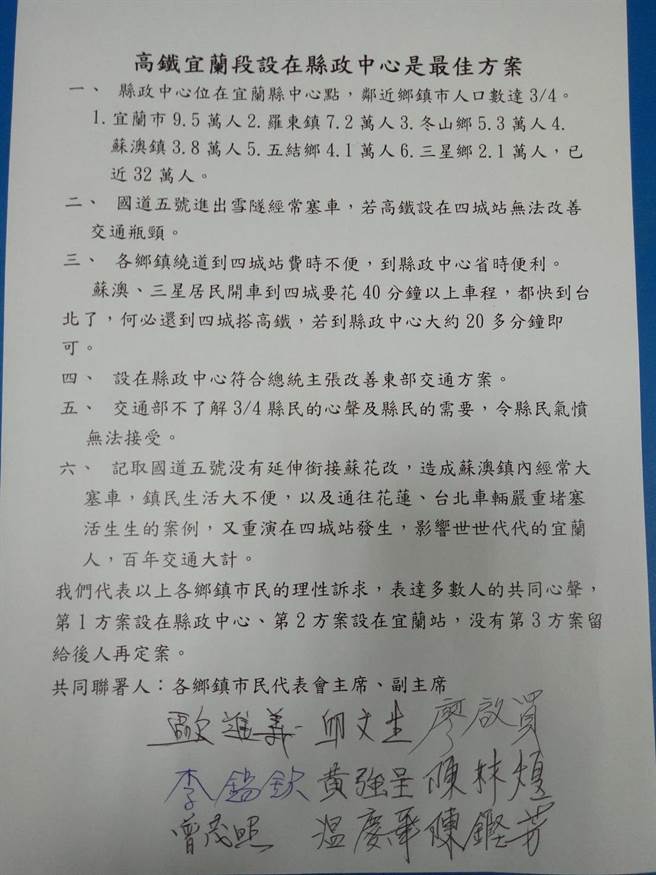 高鐵宜蘭段設在縣政中心是最佳方案
一、 縣政中心位在宜蘭縣中心點，鄰近鄉鎮市人口數達 3/4。
1.宜蘭市 9.5 萬人 2.羅東鎮 7.2 萬人 3.冬山鄉 5.3 萬人 4.
蘇澳鎮 3.8 萬人 5.五結鄉 4.1 萬人 6.三星鄉 2.1 萬人，已
近 32 萬人。
二、 國道五號進出雪隧經常塞車，若高鐵設在四城站無法改善
交通瓶頸。
三、 各鄉鎮繞道到四城站費時不便，到縣政中心省時便利。
蘇澳、三星居民開車到四城要花 40 分鐘以上車程，都快到台
北了，何必還到四城搭高鐵，若到縣政中心大約 20 多分鐘即
可。
四、 設在縣政中心符合總統主張改善東部交通方案。
五、 交通部不了解 3/4 縣民的心聲及縣民的需要，令縣民氣憤
無法接受。
六、 記取國道五號没有延伸銜接蘇花改，造成蘇澳鎮內經常大
塞車，鎮民生活大不便，以及通往花蓮、台北車輛嚴重堵塞
活生生的案例，又重演在四城站發生，影響世世代代的宜蘭
人，百年交通大計。
我們代表以上各鄉鎮市民的理性訴求，表達多數人的共同心聲，
第 1 方案設在縣政中心、第 2 方案設在宜蘭站，没有第 3 方案留
給後人再定案。
共同聯署人：各鄉鎮市民代表會主席、副主席
歐進義 邱文生 廖啟賢
李錫欽 黃強呈 陳林煌
曾茂照 溫慶華 陳鏗芳